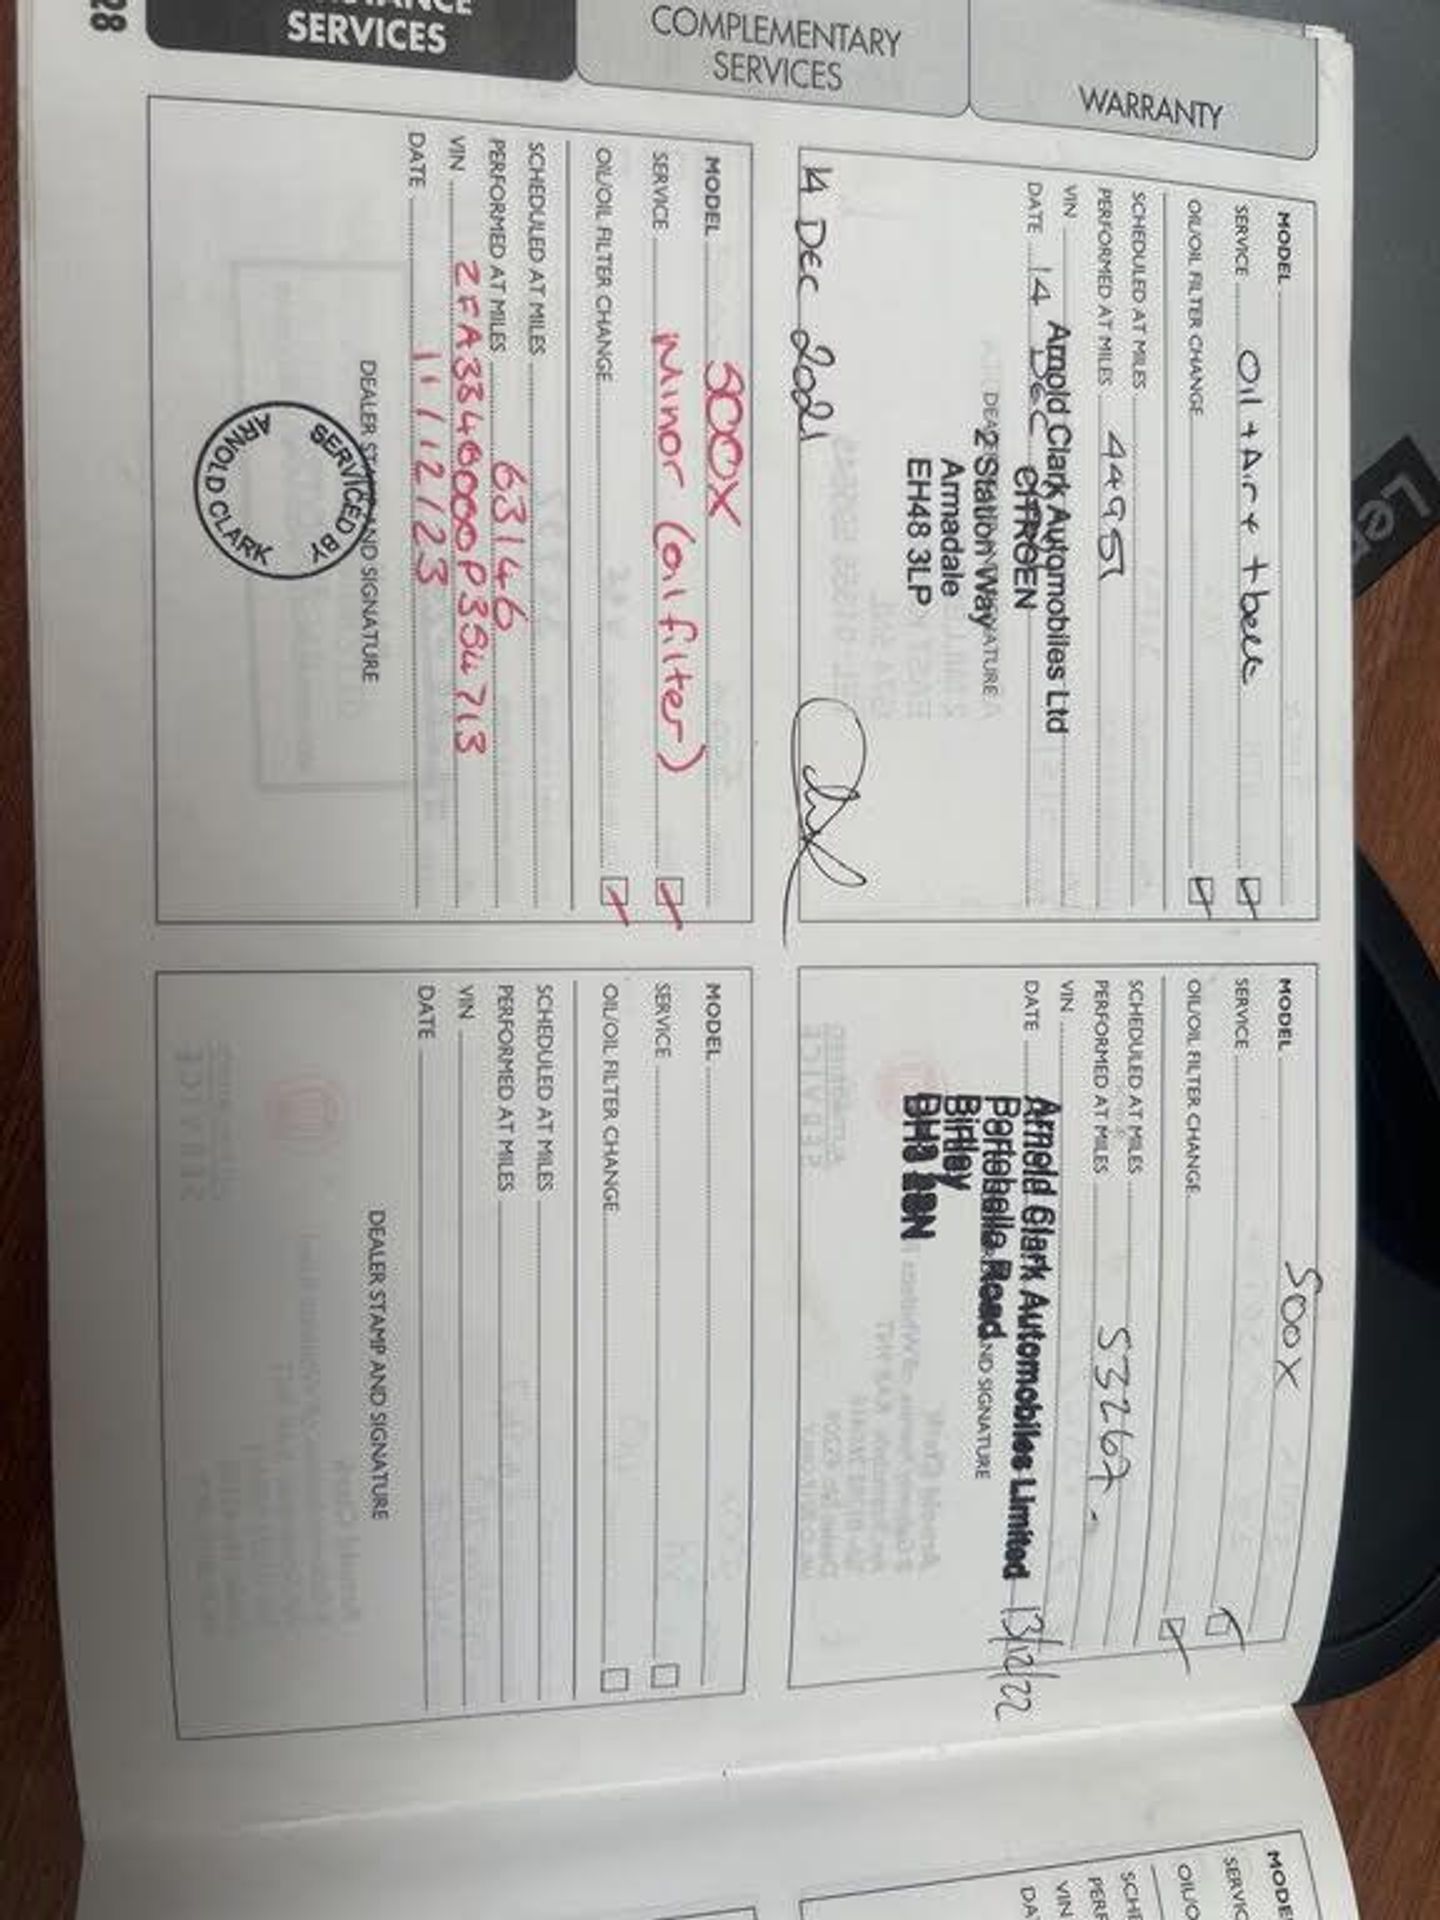 28
SERVICES
COMPLEMENTARY
SERVICES
WARRANTY
MODEL
SERVICE Oil + Air +
OIL/OIL FILTER CHANGE
SCHEDULED AT MILES
PERFORMED AT MILES 44951
VIN
DATE 14 Dec
Arnold Clark Automobiles Ltd
CITROEN
2 Station Way
Armadale
EH48 3LP
14 DEC 2021
MODEL 500X
SERVICE
OIL/OIL FILTER CHANGE
SCHEDULED AT MILES
PERFORMED AT MILES 53267
VIN
DATE
Arnold Clark Automobiles Limited 13/12/22
Portobello Road
AND SIGNATURE
Birtley
MODEL 500X
SERVICE Minor (oil filter)
OIL/OIL FILTER CHANGE
SCHEDULED AT MILES
PERFORMED AT MILES 63146
VIN ZFA3340000P354713
DATE 11/12/23
DEALER STAMP AND SIGNATURE
SERVICED BY
ARNOLD CLARK
MODEL
SERVICE
OIL/OIL FILTER CHANGE
SCHEDULED AT MILES
PERFORMED AT MILES
VIN
DATE
DEALER STAMP AND SIGNATURE